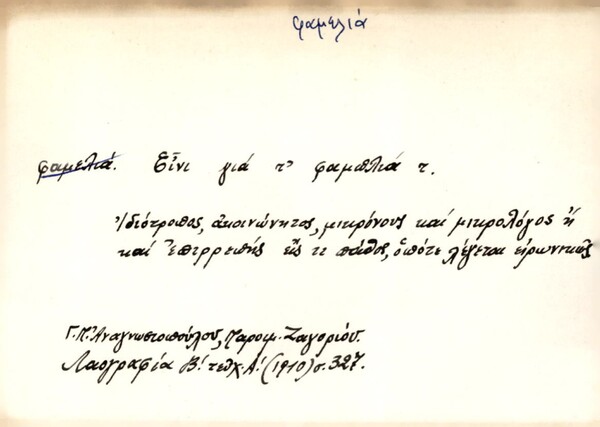 φαμελιά
φαμελιά. Εἶνι γιά τ' φαμιλιά τ.
Ἰδιότροπος, ἀκοινώνητος, μικρόνους καί μικρολόγος ἤ
καί ἐπιρρεπής εἴς τι πάθος, ὁπότε λέγεται εἰρωνικῶς
Γ. Π. Ἀναγνωστοπούλου, Παροιμ. Ζαγορίου.
Λαογραφία Β! τεῦχ. Α! (1910) σ. 327.